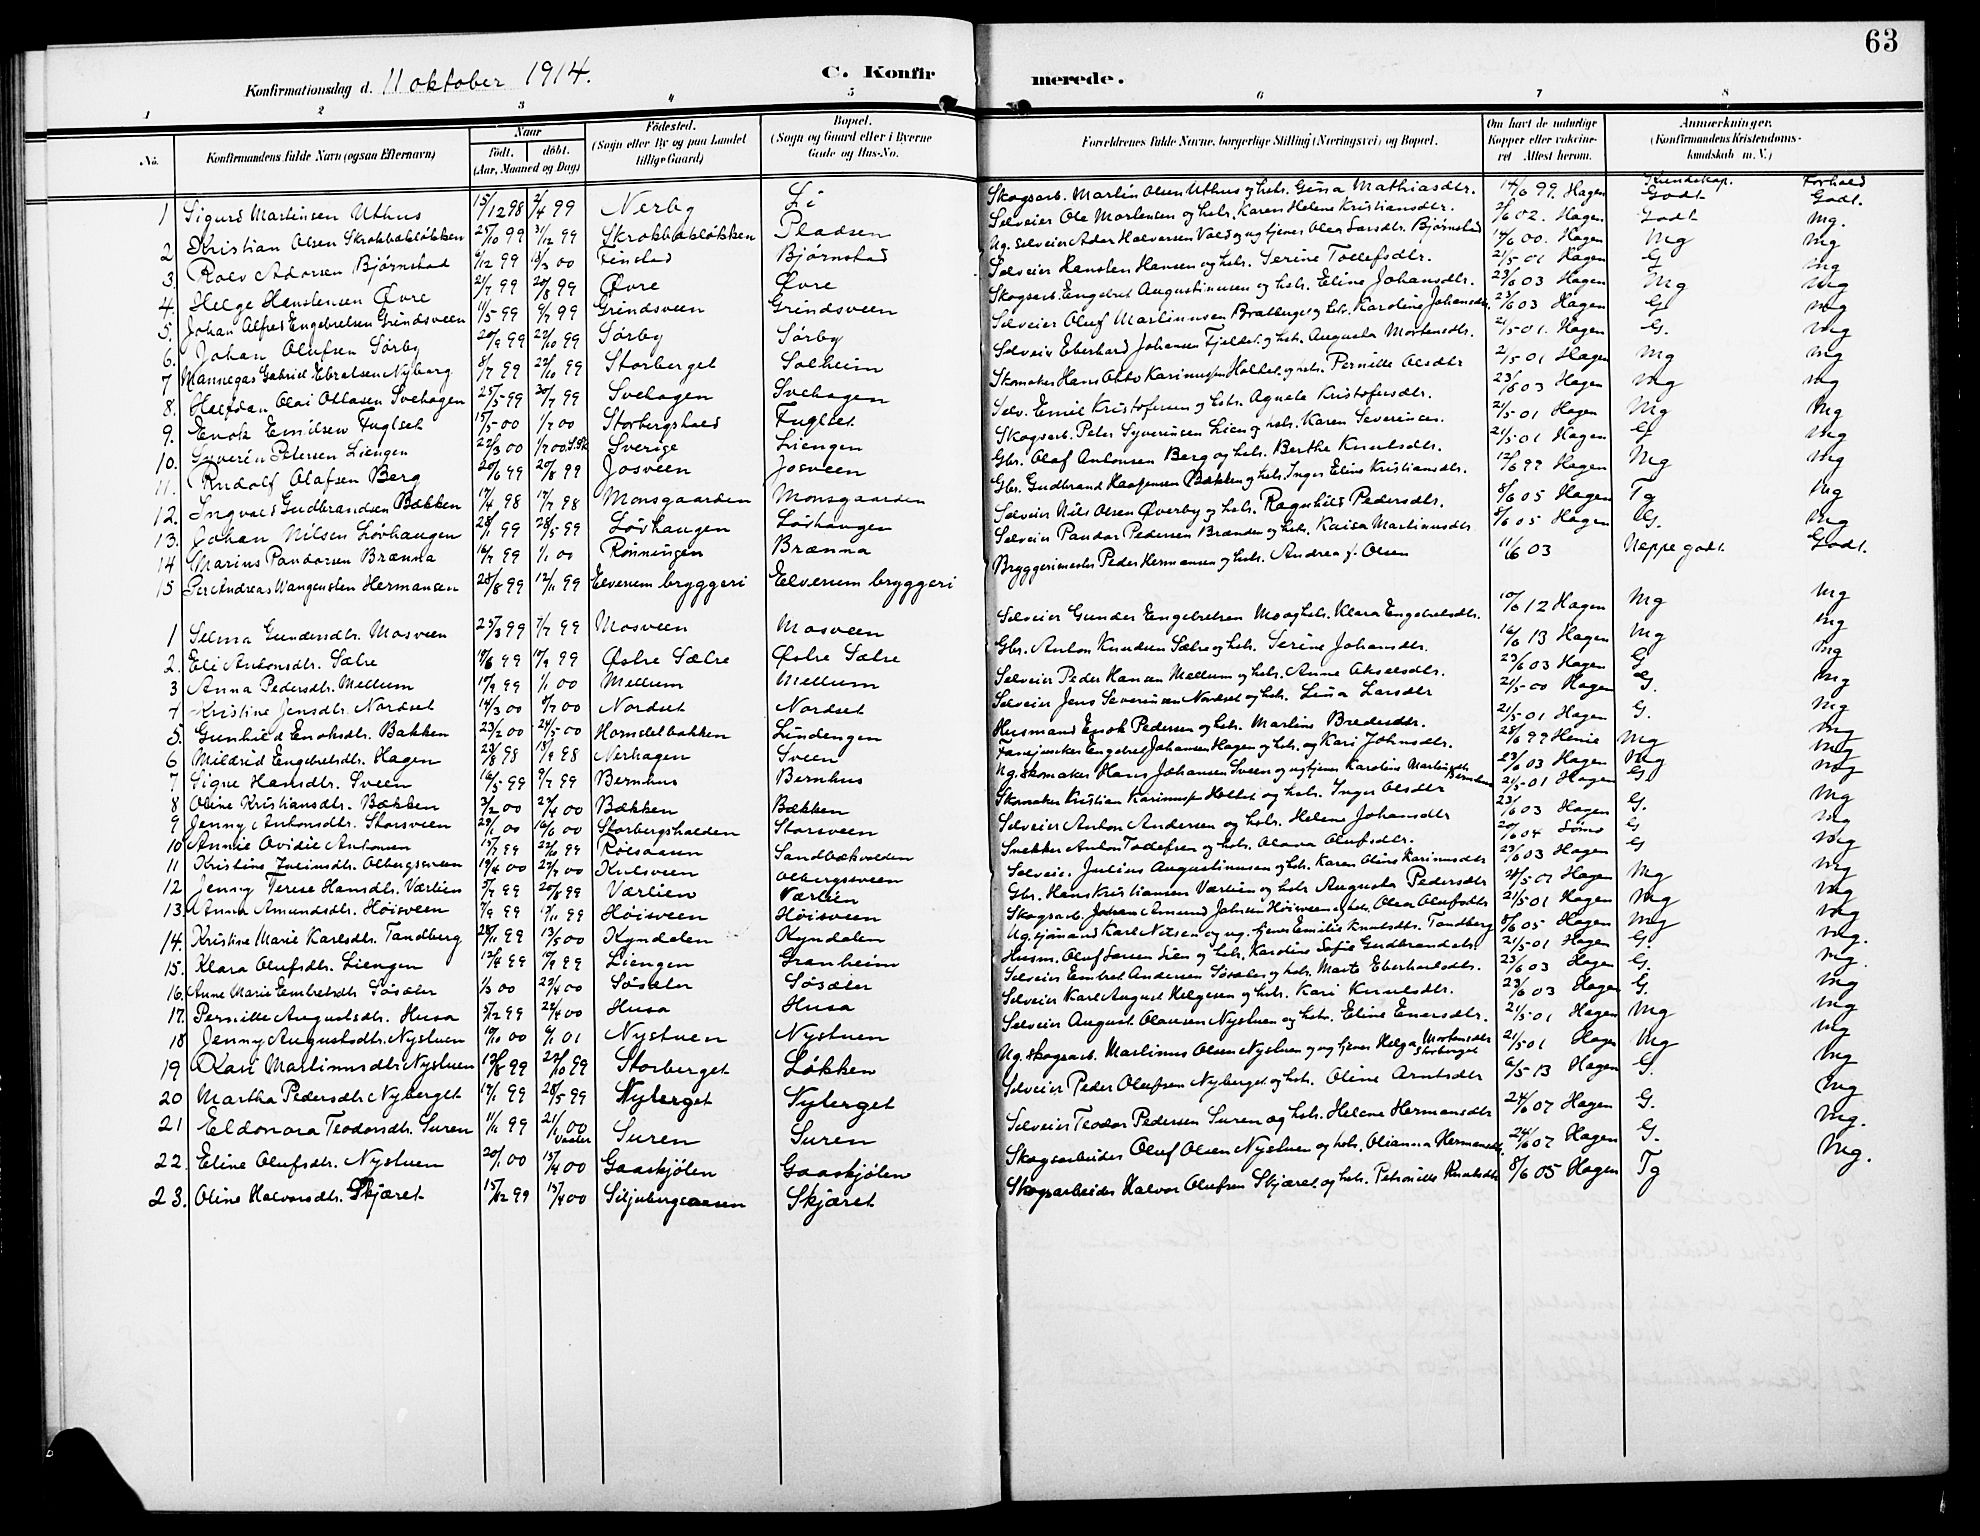 63
Konfirmationsdag d. 11 oktober 1914. C. Konfirmerede.
1 2 3 4 5 6 7 8
No. Konfirmandens fulde Navn (ogsaa Efternavn) Naar født. døbt. (Aar, Maaned og Dag) Fødested. (Sogn eller By og paa Landet tillige Gaard) Bopæl. (Sogn og Gaard eller i Byerne Gade og Hus-No. Forældrenes fulde Navne, borgerlige Stilling (Næringsvei) og Bopæl. Om havt de naturlige Kopper eller vaksineret Attest herom. Anmærkninger. (Konfirmandens Kristendomskundskab m. V.)
Kundskap. Forhold
1 Sigurd Martinsen Uthus 15/12 98 2/4 99 Nerby Li Skogsarb. Martin Olsen Uthus og hstr. Gina Mathiasdtr. 14/6 99. Hagen Godt Godt.
2 Kristian Olsen Skrabbaløkken 25/10 99 31/12 99 Skrabbaløkken Pladsen Selveier Ole Mortensen og hstr. Karen Helene Kristiansdtr. 2/6 02. Hagen Godt Mg.
3 Rolv Adorsen Bjørnstad 6/12 99 18/3 00 Finstad Bjørnstad Ug. selveier Ador Halversen Vold og ug tjener Olea Larsdtr. Bjørnstad 14/6 00. Hagen Mg Mg
4. Helge Henstensen Øvre 21/7 99 20/8 99 Øvre Øvre Selveier Hensten Hansen og hstr. Serine Tollefsdtr. 21/5 01 Hagen G Mg
5. Johan Alfred Engebretsen Grindsveen 11/5 99 9/7 99 Grindsveen Grindsveen Skogsarb. Engebret Augustinusen og hstr. Eline Johansdtr. 23/6 03 Hagen Mg Mg
6. Johan Olufsen Sørby 20/9 99 22/10 99 Sørby Sørby Selveier Oluf Martinusen Bratberget og hstr. Karoline Johansdtr. 23/6 03 Hagen G Mg
7 Mannegas Gabriel Ebratsen Nyborg 8/7 99 22/10 99 Storberget Solheim Selveier Eberhard Johansen Fjeldet og hstr. Augusta Mortensdtr. 21/5 01. Hagen G. Mg
8. Halfdan Olai Ottosen Svehagen 25/5 99 30/7 99 Svehagen Svehagen Skomaker Hans Otto Karinusen Holtet og hstr. Pernille Olsdtr 21/5 01 Hagen Mg Mg
9. Enok Emilsen Fuglset 15/5 00 1/7 00 Storbergshold Fuglset Selv. Emil Kristofersen og hstr. Agnete Kristofersdtr. 23/6 03 Hagen Mg Mg
10. Syverin Petersen Liengen 22/3 00 1/7 00 Sverige Liengen Skogsarb. Peter Syverinsen Lien og hstr. Karen Severinsen. 21/5 01 Hagen Mg Mg
11. Rudolf Olafsen Berg 20/6 99 20/8 99 Josveen Josveen Gbr. Olaf Antonsen Berg og hstr. Berthe Knutsdtr. 21/5 01 Hagen G Mg
12. Ingvald Gudbrandsen Bækken 17/4 98 17/7 98 Monsgaarden Monsgaarden Gbr. Gudbrand Haagensen Bækken og hstr. Inger Eline Kristiansdtr. 12/6 99 Hagen Mg Mg
13. Johan Nilsen Løvhaugen 28/1 99 28/5 99 Løvhaugen Løvhaugen Selveier Nils Olsen Øverby og hstr. Ragnhild Pedersdtr. 8/6 05 Hagen Tg Mg
14 Marius Pandorsen Brænna 16/7 99 1/1 00 Rønningen Brænna Selveier Pandor Pedersen Brænden og hstr. Kaisa Martinusdtr 8/6 05 Hagen G. Mg
15 Per Andreas Wangensten Hermansen 28/8 99 12/11 99 Elverum bryggeri Elverum bryggeri Bryggerimester Peder Hermansen og hstr. Andrea f. Olsen 11/6 03 Neppe godt. Godt.
1 Selma Gundersdtr. Mosveen 25/3 99 7/7 99 Mosveen Mosveen Selveier Gunder Engebretsen Mo og hstr. Klara Engebretsdtr. 10/6 12 Hagen Mg Mg
2. Eli Antonsdtr. Sætre 19/6 99 17/9 99 Østre Sætre Østre Sætre Gbr. Anton Knudsen Sætre og hstr. Serine Johansdtr. 16/6 13 Hagen Mg Mg
3 Anna Pedersdtr. Mellum 17/9 99 1/1 00 Mellum Mellum Selveier Peder Hansen Mellum og hstr. Anne Akselsdtr. 23/6 03 Hagen G Mg
4 Kristine Jensdtr. Nordset 14/3 00 8/7 00 Nordset Nordset Selveier Jens Severinsen Nordset og hstr. Lina Larsdtr 21/5 00 Hagen G. Mg
5. Gunhild Enoksdtr. Bakken 23/2 00 24/5 00 Hornsletbakken Lindengen Husmand Enok Pedersen og hstr. Martine Bredesdtr. 21/5 01 Hagen G. Mg
6 Mildrid Engebretsdtr. Hagen 23/8 98 18/9 98 Nerhagen Sveen Engebret Johansen Hagen og hstr. Kari Johnsdtr. 28/6 99 Henie Mg Mg
7 Signe Hansdtr. Sveen 16/5 99 9/7 99 Bernhus Bernhus Ug. skomaker Hans Johansen Sveen og ug tjener Karoline Martinsdtr. Bernhus 23/6 03 Hagen Mg Mg
8 Oline Kristiansdtr. Bækken 3/2 00 29/4 00 Bækken Bækken Skomaker Kristian Karinusen Holtet og hstr. Inger Olsdtr 21/5 01 Hagen G. Mg
9 Jenny Antonsdtr. Storsveen 29/1 00 16/6 00 Storbergshalden Storsveen Selveier Anton Andersen og hstr. Helene Johansdtr 23/6 03 Hagen G. Mg
10 Annie Ovidie Antonsen 15/7 99 22/10 99 Roesaasen Sandbækvolden Snekker Anton Tollefsen og hstr. Olava Olufsdtr. 20/6 04 G Mg
11 Kristine Juliusdtr. Olbergsveen 19/4 00 22/7 00 Kvilsveen Olbergsveen Selveier Julius Augustinusen og hstr. Karen Oline Karinusdtr 23/6 03 Hagen G Mg
12 Jenny Terese Hansdtr. Værlien 5/7 99 20/8 99 Værlien Værlien Gbr. Hans Kristiansen Værlien og hstr. Augusta Pedersdtr 28/5 07 Hagen Mg Mg
13 Anna Amundsdtr. Høisveen 7/9 99 19/11 99 Høisveen Høisveen Skogsarb. Amund Johnsen Høisveen og hstr. Olea Olufsdtr 21/5 01 Hagen Mg Mg
14. Kristine Marie Karlsdtr. Tandberg 28/11 99 13/5 00 Kyndalen Kyndalen Ug. sjømand Karl Nilsen og ug. tjener Emilie Knutsdtr. Tandberg 8/6 05 Hagen Mg Mg
15. Klara Olufsdtr. Liengen 12/4 99 17/9 99 Liengen Granheim Husm. Oluf Larsen Lien og hstr. Karoline Sofie Gudbrandsdtr. 21/5 01 Hagen G. Mg.
16. Anne Marie Embretsdtr Søsæter 1/3 00 22/4 00 Søsæter Søsæter Selveier Embret Andersen Søsæter og hstr. Marte Eberhardsdtr. 23/6 03 Hagen G. Mg.
17. Pernille Augustsdtr. Husa 5/12 99 22/4 00 Husa Husa Selveier Karl August Helgesen og hstr. Kari Knutsdtr. 23/6 03 Hagen G. Mg
18 Jenny Augustsdtr. Nystuen 19/10 00 6/1 01 Nystuen Nystuen Selveier August Olausen Nystuen og hstr. Eline Enersdtr. 21/5 01 Hagen Mg Mg
19 Kari Martinusdtr. Nystuen 13/8 99 22/10 99 Storberget Løkken Ug. skogsarb. Martinus Olsen Nystuen og ug tjener Helga Mortensdtr Storberget 21/5 01 Hagen Mg Mg
20 Martha Pedersdtr. Nyberget 19/1 99 28/5 99 Nyberget Nyberget Selveier Peder Olufsen Nyberget og hstr. Oline Arntsdtr 6/5 13 Hagen G. Mg
21 Eldonora Teodorsdtr. Suren 11/11 99 21/1 00 Suren Suren Selveier Teodor Pedersen Suren og hstr. Helene Hermansdtr 24/6 07 Hagen G. Mg
22. Eline Olufsdtr. Nystuen 20/1 00 15/4 00 Gaaskjølen Gaaskjølen Skogsarbeider Oluf Olsen Nystuen og hstr. Olianna Hermansdtr. 24/6 07 Hagen G. Mg.
23. Oline Halvorsdtr. Skjæret 15/12 99 15/4 00 Siljubergsaasen Skjæret Skogsarbeider Halvor Olufsen Skjæret og hstr. Petronille Knutsdtr 8/6 05 Hagen Tg Mg.